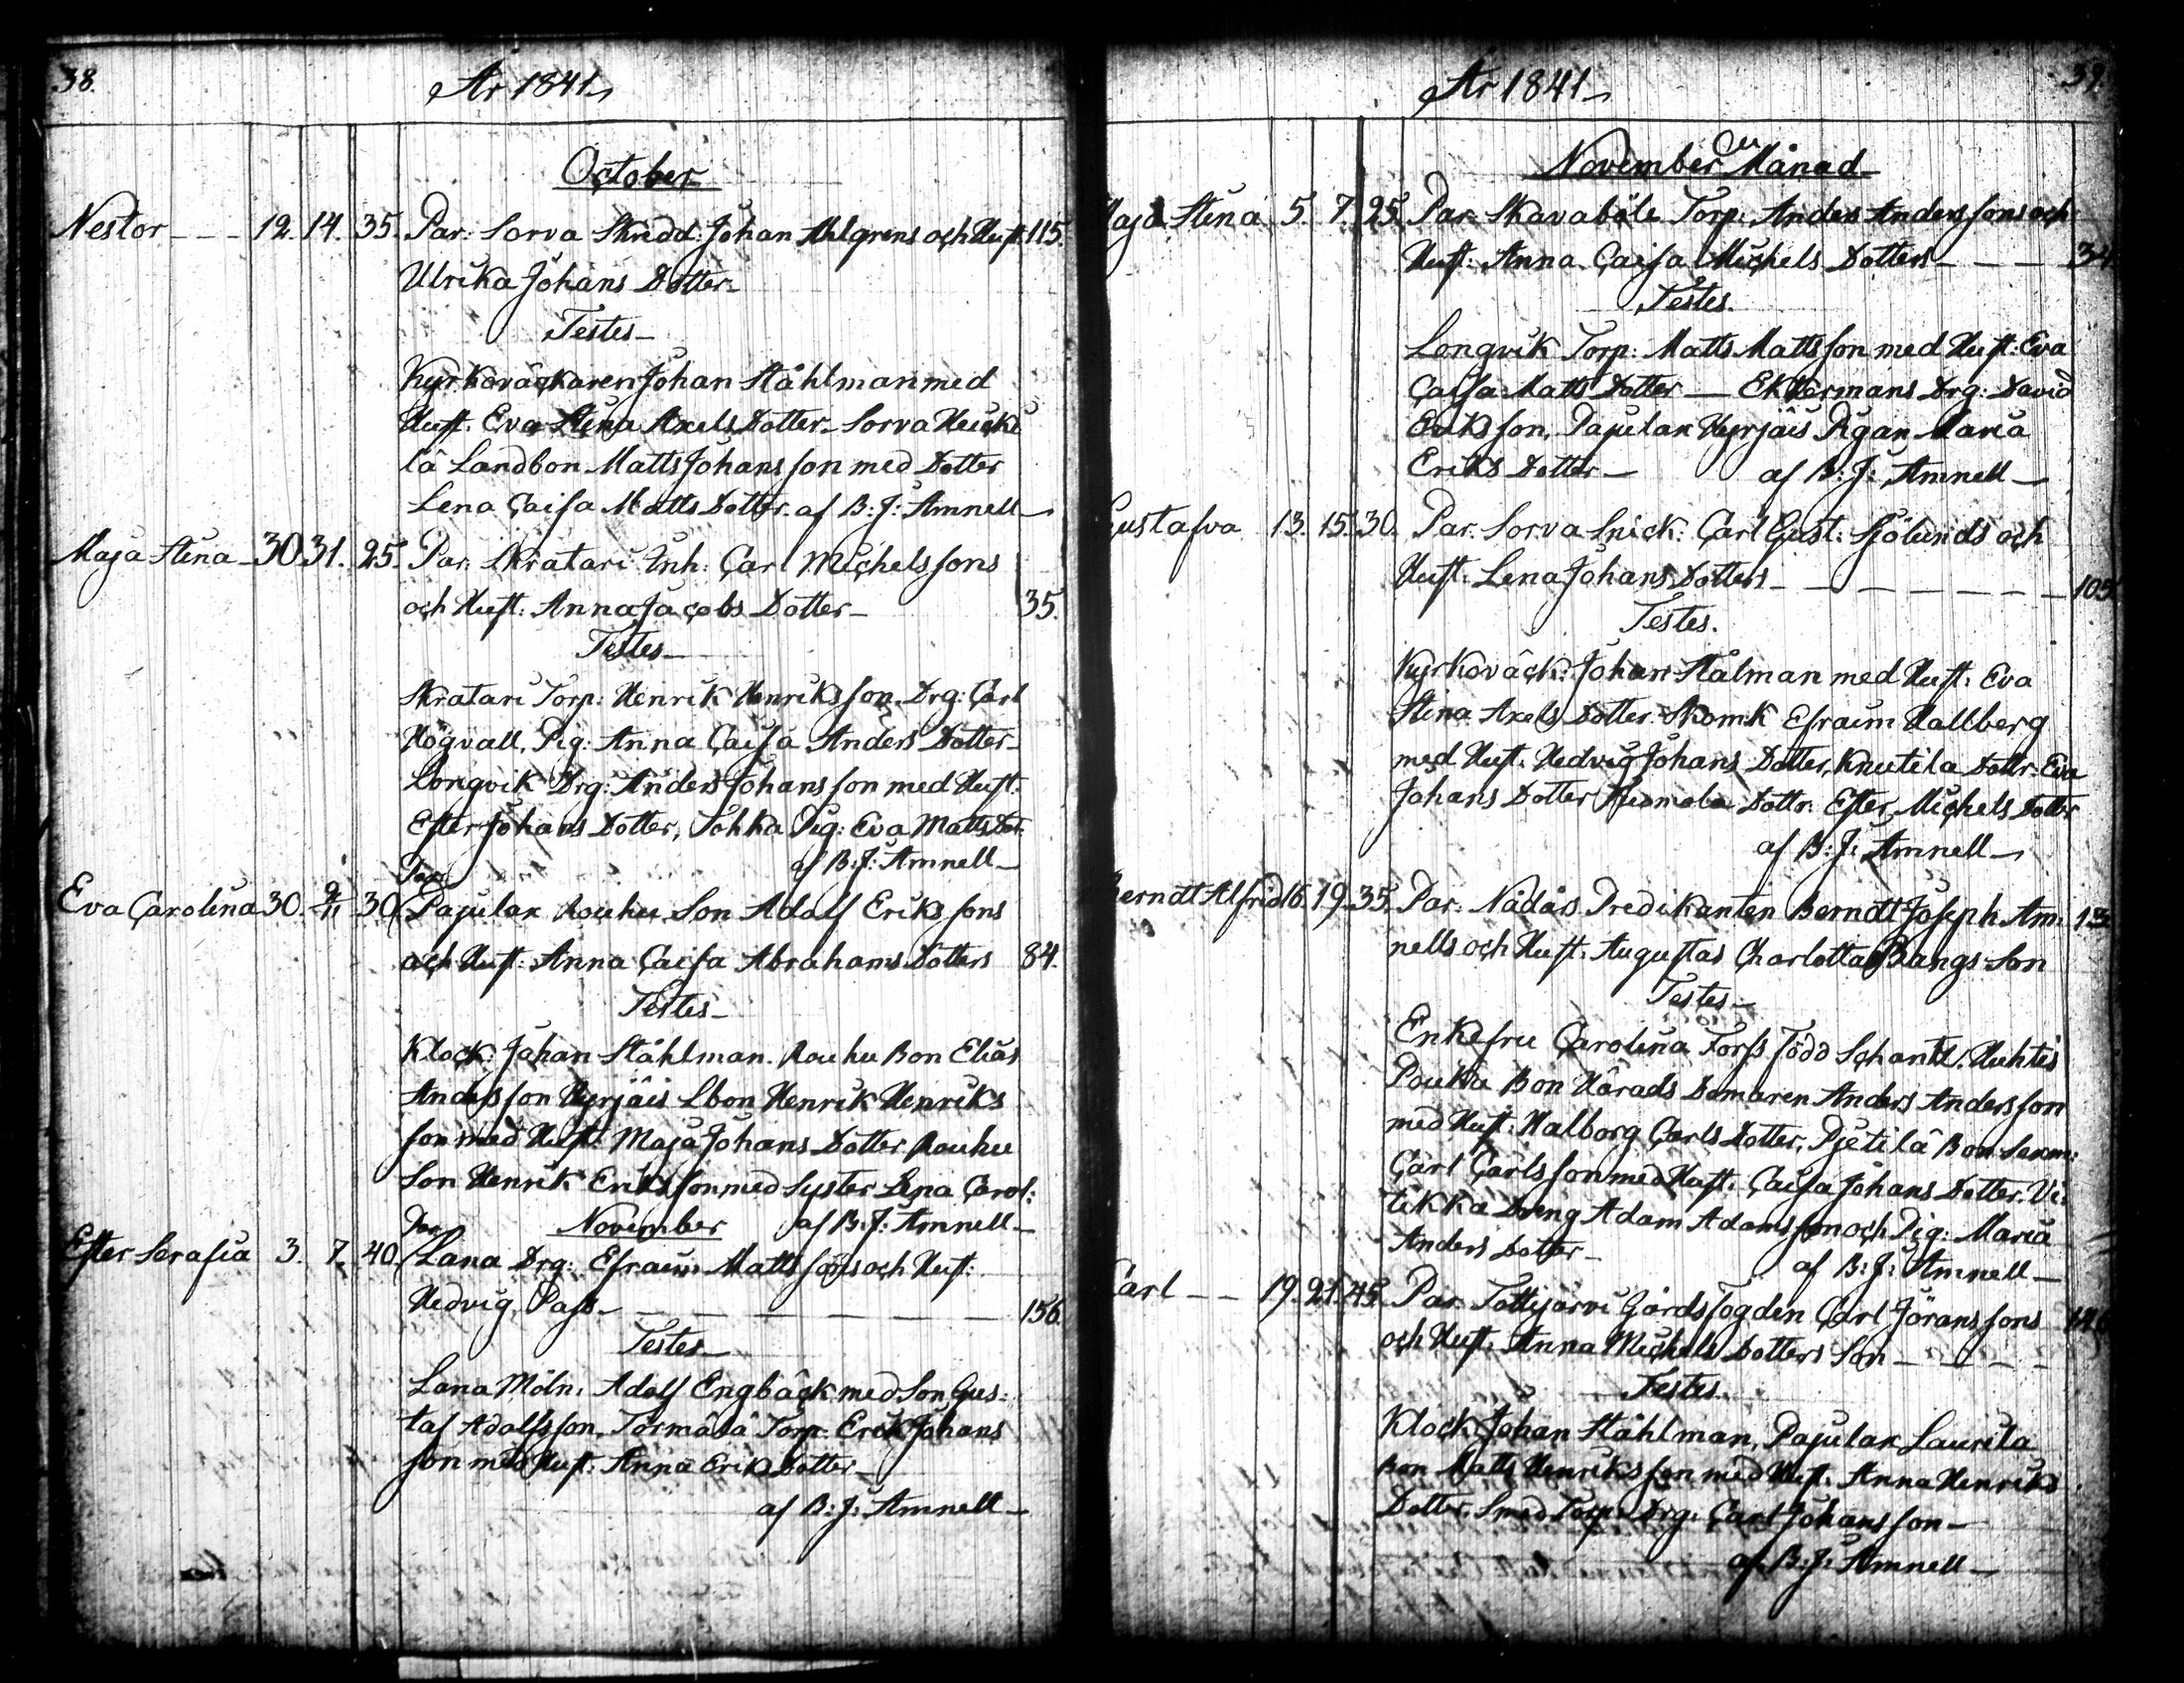 38.
År 1841
October
Nestor - - - 12. 14. 35. Par: Sorva Skrädd: Johan Ahlgrens och Hust: 115.
Ulrika Johans Dotter
Testes
Kyrkoväckaren Johan Ståhlman med
Hust: Eva Stina Axels Dotter. Sorva Heicki
lä Landbon Matts Johansson med Dotter
Lena Caisa Matts Dotter. af B: J: Amnell
Maja Stina - 30 31. 25. Par: Skratari Inh: Carl Michelssons
och Hust: Anna Jacobs Dotter - 35.
Testes
Skratari Torp: Henrik Henriksson. Drg: Carl
Högvall, Pig: Anna Caisa Anders Dotter
Longvik Drg: Anders Johansson med Hust.
Ester Johans Dotter, Sohka Pig: Eva Matts Dot:
af B: J: Amnell
Par
Eva Carolina 30. 9/11 30. Pajulax Rouhu Son Adolf Erikssons
och Hust: Anna Caisa Abrahams Dotters 84.
Testes
Klock: Johan Ståhlman. Rouhu Bon Elias
Andersson Hyrjäis Lbon Henrik Henriks
son med Hust: Maja Johans Dotter. Rouhu
Son Henrik Eriksson med Syster Lena Carol:
af B: J: Amnell
November
Par
Ester Serafia 3. 7. 40. Lana Drg: Efraim Mattssons och Hust:
Hedvig Pass - - - - - 156.
Testes
Lana Möln: Adolf Engbäck med Son Gus:
taf Adolfsson, Törmälä Torp: Erik Johans
son med Hust: Anna Eriks Dotter
af B: J: Amnell
39.
År 1841
November Månad
Maja Stina 5. 7. 25. Par: Skavaböle Torp: Anders Anderssons och
Hust: Anna Caisa Michels Dotters - - - 34
Testes.
Longvik Torp: Matts Mattsson med Hust: Eva
Caisa Matts Dotter - Ekkermans Drg: David
Eriksson, Pajulax Hyrjäis Pigan Maria
Eriks Dotter - af B: J: Amnell
Gustafva 13. 15. 30. Par. Sorva Snick: Carl Gust: Sjölunds och
Hust: Lena Johans Dotters - - - - - 105
Testes.
Kyrkoväck: Johan Stålman med Hust: Eva
Stina Axels Dotter. Skomk Efraim Hallberg
med Hust: Hedvig Johans Dotter, Knutila Dottr. Eva
Johans Dotter Dottr: Ester Michels Dotter
af B: J: Amnell
Berndt Alfrid 16. 19. 35. Par: Nådårs Predikanten Berndt Joseph Am: 13
nells och Hust: Augustas Charlotta Bangs Son
Testes
Enkefru Carolina Forss född Schantz. Huhtis
Poukka Bon Härads Domaren Anders Andersson
med Hust: Walborg Carls Dotter, Pjetilä Bon
Carl Carlsson med Hust: Caisa Johans Dotter. Vi:
tikka Dreng Adam Adamsson och Pig: Maria
Anders Dotter -
af B: J: Amnell
Carl - - 19. 21. 45. Par. Tottijärvi Gårdsfogden Carl Jöranssons
och Hust: Anna Michels Dotters Son - - - -
Testes.
Klock Johan Ståhlman, Pajulax Laurila
Bon Matts Henriksson med Hust: Anna Henriks
Dotter. Smeds Torp: Drg: Carl Johansson -
af B: J: Amnell